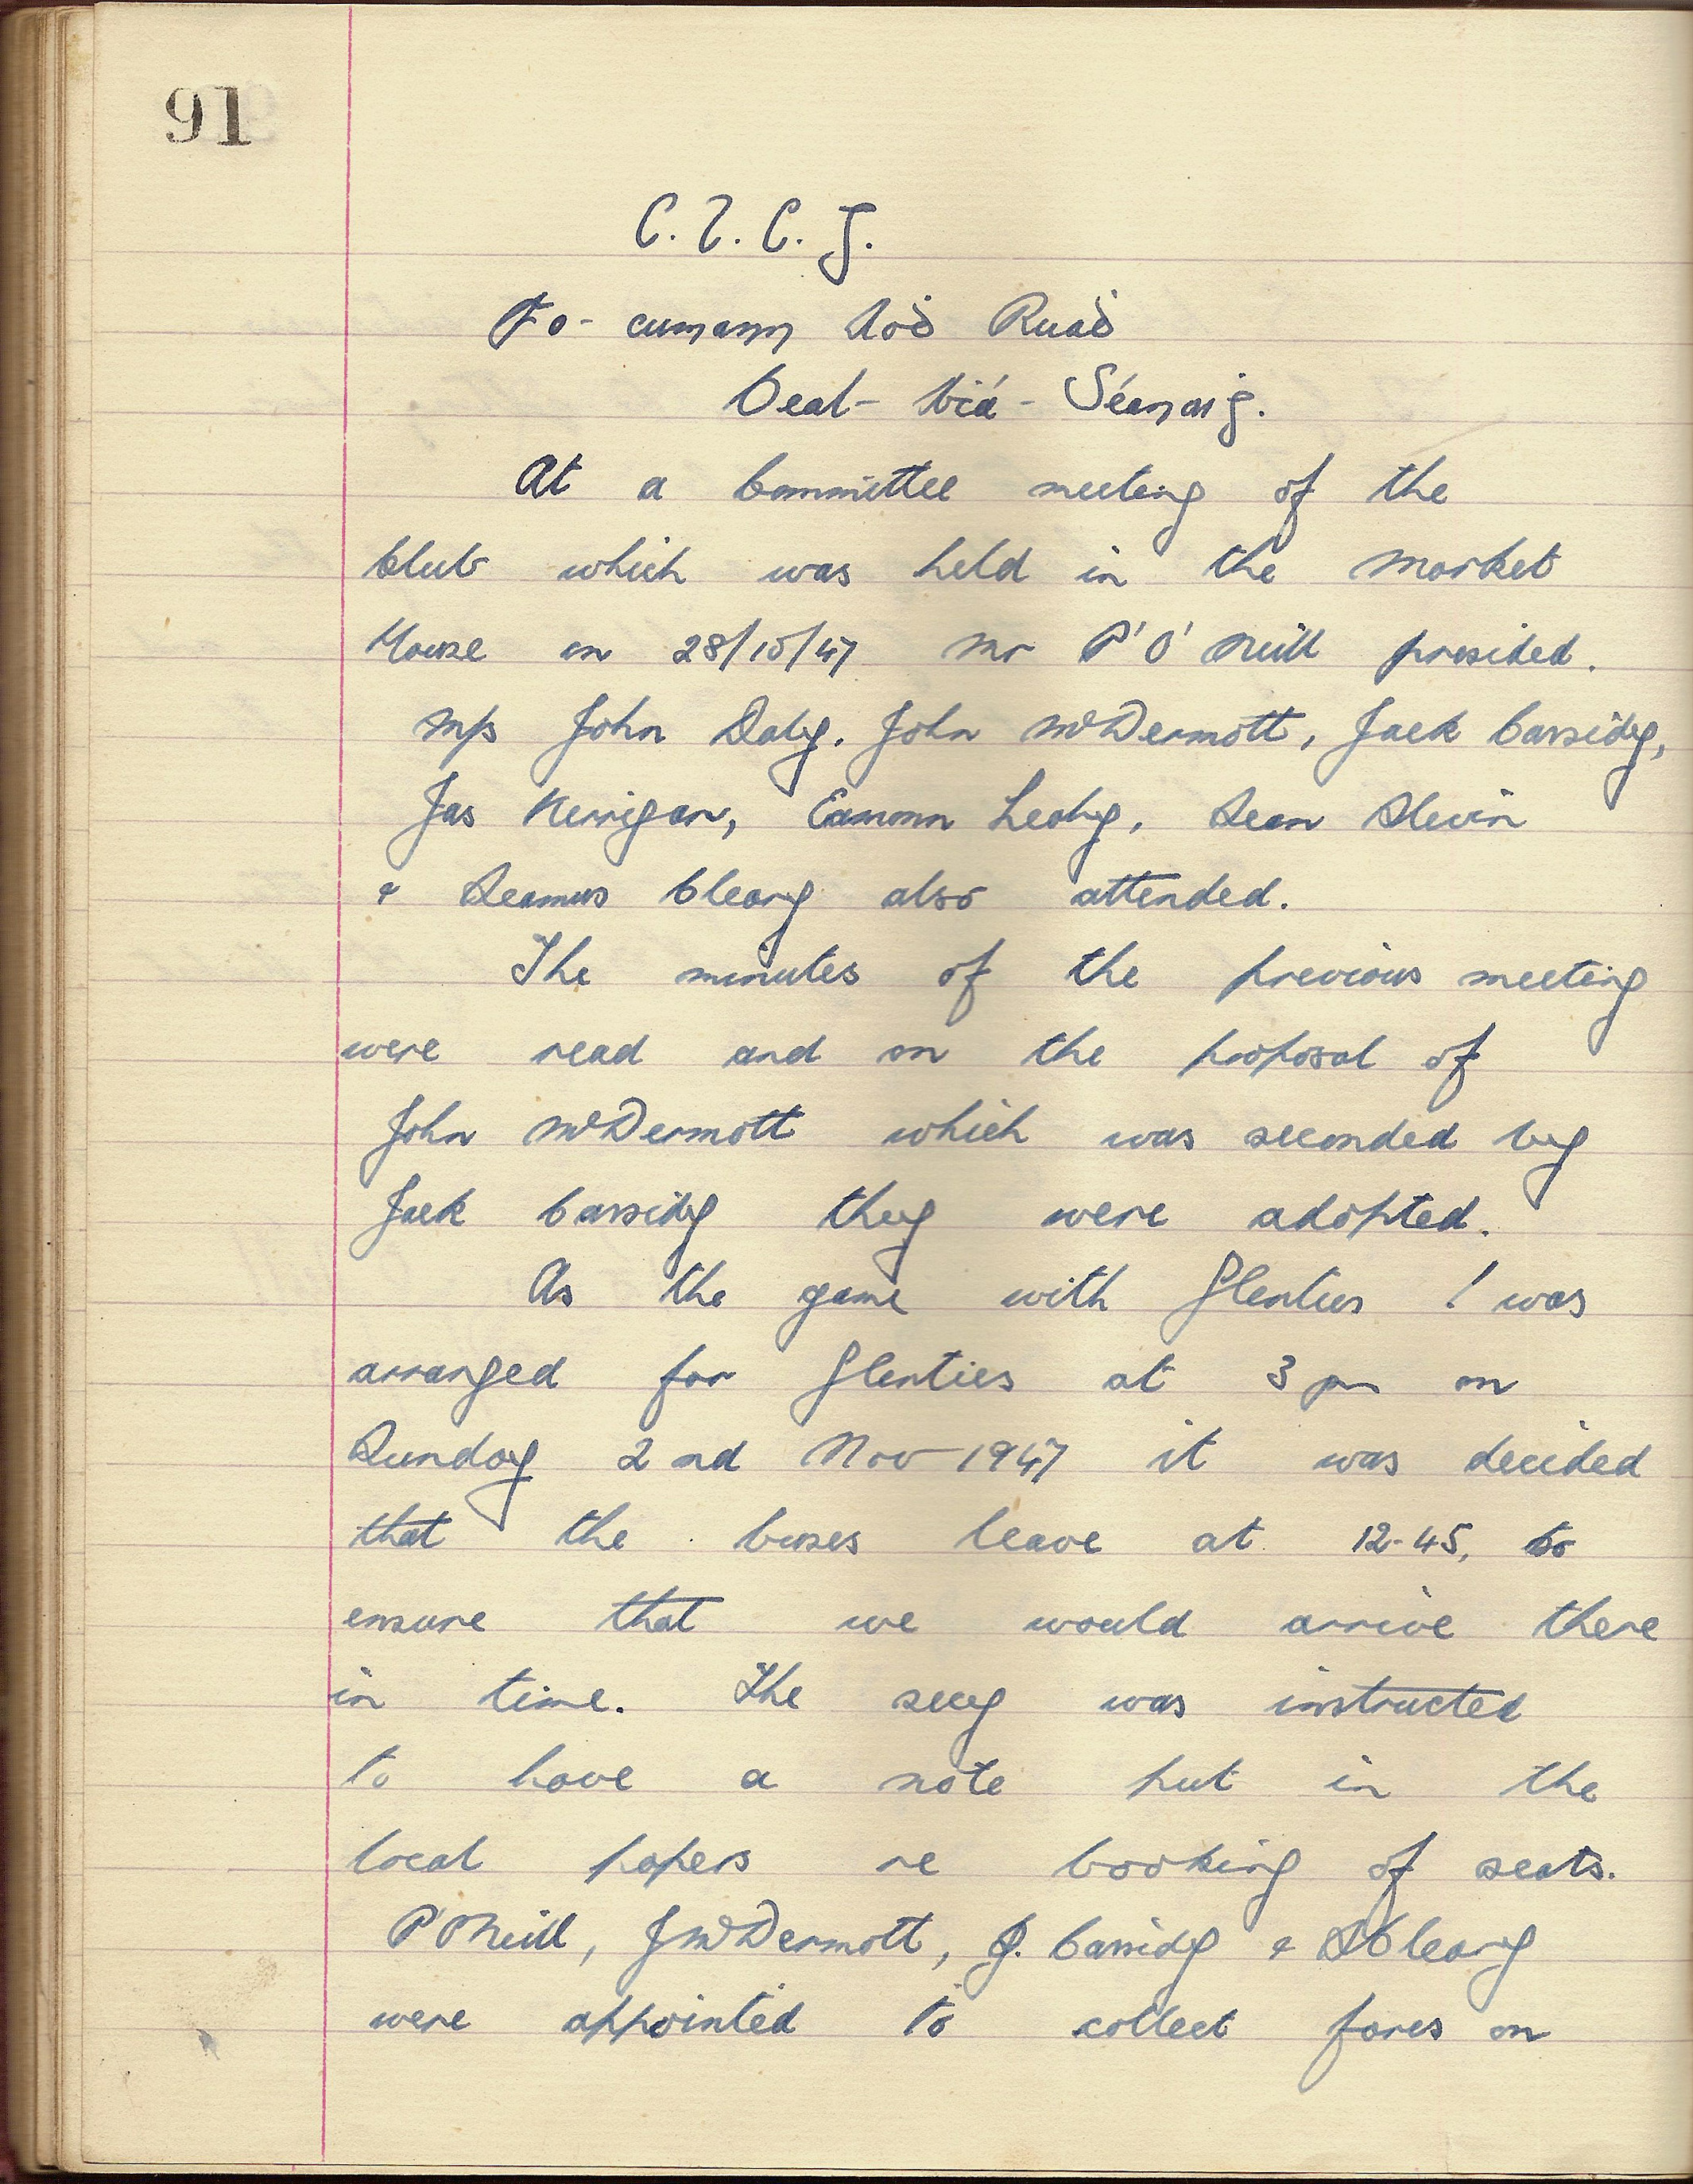 91
C. L. C. G.
Fo-cumann Aoḋ Ruaḋ
Beal-Áṫa-Séanaiġ.
At a Committee meeting of the
Club which was held in the Market
House on 28/10/47 Mr P'O'Neill presided.
M/s John Daly. John McDermott, Jack Cassidy,
Jas Kerrigan, Eamonn Leahy, Sean Slevin
& Seamus Cleary also attended.
The minutes of the previous meeting
were read and on the proposal of
John McDermott which was seconded by
Jack Cassidy they were adopted.
As the game with Glenties ! was
arranged for Glenties at 3 pm on
Sunday 2nd Nov 1947 it was decided
that the buses leave at 12-45, to
ensure that we would arrive there
in time. The secy was instructed
to have a note put in the
local papers re booking of seats.
P O'Neill, J McDermott, J. Cassidy & S Cleary
were appointed to collect fares on